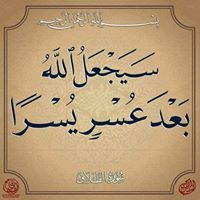 بسم الله الرحمن الرحيم
سَيَجْعَلُ ٱللَّهُ
بَعْدَ عُسْرٍ يُسْرًا
سورة الطلاق